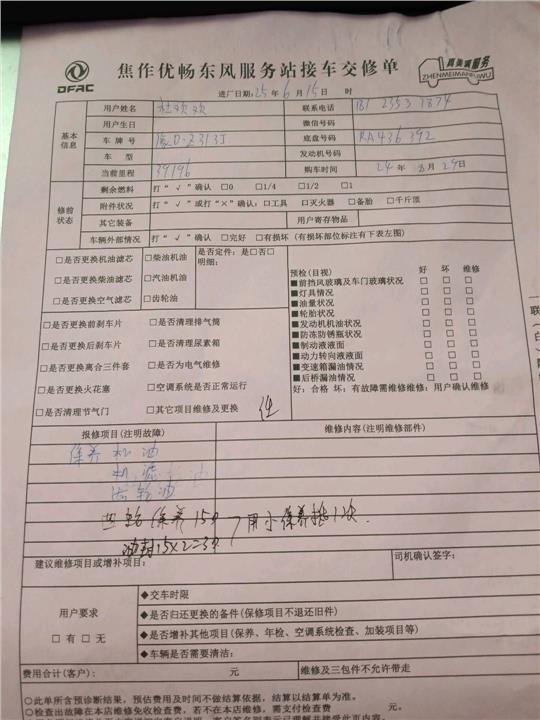 DFAC
焦作优畅东风服务站接车交修单
真美满服务
ZHENMEIMANFUWU
进厂日期:25年6月15日 时
基本信息
用户姓名 杜欢欢 联系电话 181 2353 1874
用户生日 微信号码
车牌号 豫D-Z313J 底盘号码 RA436392
车型 发动机号码
当前里程 39196 购车时间 24年8月29日
修前状态
剩余燃料 打“√”确认 □0 □1/4 □1/2 □1
附件状况 打“√”或打“×”确认:□工具 □灭火器 □备胎 □千斤顶
其它装备 用户寄存物品
车辆外部情况 打“√”确认 □完好 □有损坏(有损坏部位标注有下表左图)
□是否更换机油滤芯 □柴油机油 是否定件:是□否□
明细:
□是否更换柴油滤芯 □汽油机油
□是否更换空气滤芯 □齿轮油
□是否更换前刹车片 □是否清理排气筒
□是否更换后刹车片 □是否清理尿素箱
□是否更换离合三件套 □是否为电气维修
□是否更换火花塞 □空调系统是否正常运行
□是否清理节气门 □其它项目维修及更换
预检(目视) 好 坏 维修
■前挡风玻璃及车门玻璃状况 □ □ □
■灯具情况 □ □ □
■油量状况 □ □ □
■轮胎状况 □ □ □
■发动机机油状况 □ □ □
■防冻防锈瓶状况 □ □ □
■制动液液面 □ □ □
■动力转向液液面 □ □ □
■变速箱漏油情况 □ □ □
■后桥漏油情况 □ □ □
好:合格 坏:有故障需维修维修:用户确认维修
报修项目(注明故障) 维修内容(注明维修部件)
保养 机油
机滤
齿轮油
保养15
油封15×2=30
建议维修项目或增补项目: 司机确认签字:
用户要求
□有 □无
◆交车时限
◆是否归还更换的备件(保修项目不退还旧件)
◆是否增补其他项目(保养、年检、空调系统检查、加装项目等)
◆车辆是否需要清洁:
费用合计(客户): 元 维修及三包件不允许带走
○此单所含预诊断结果,预估费用及时间不做结算依据,结算以结算单为准。
○检查出故障在本店维修免收检查费,若不在本店维修,需支付检查费 元。
一联(白